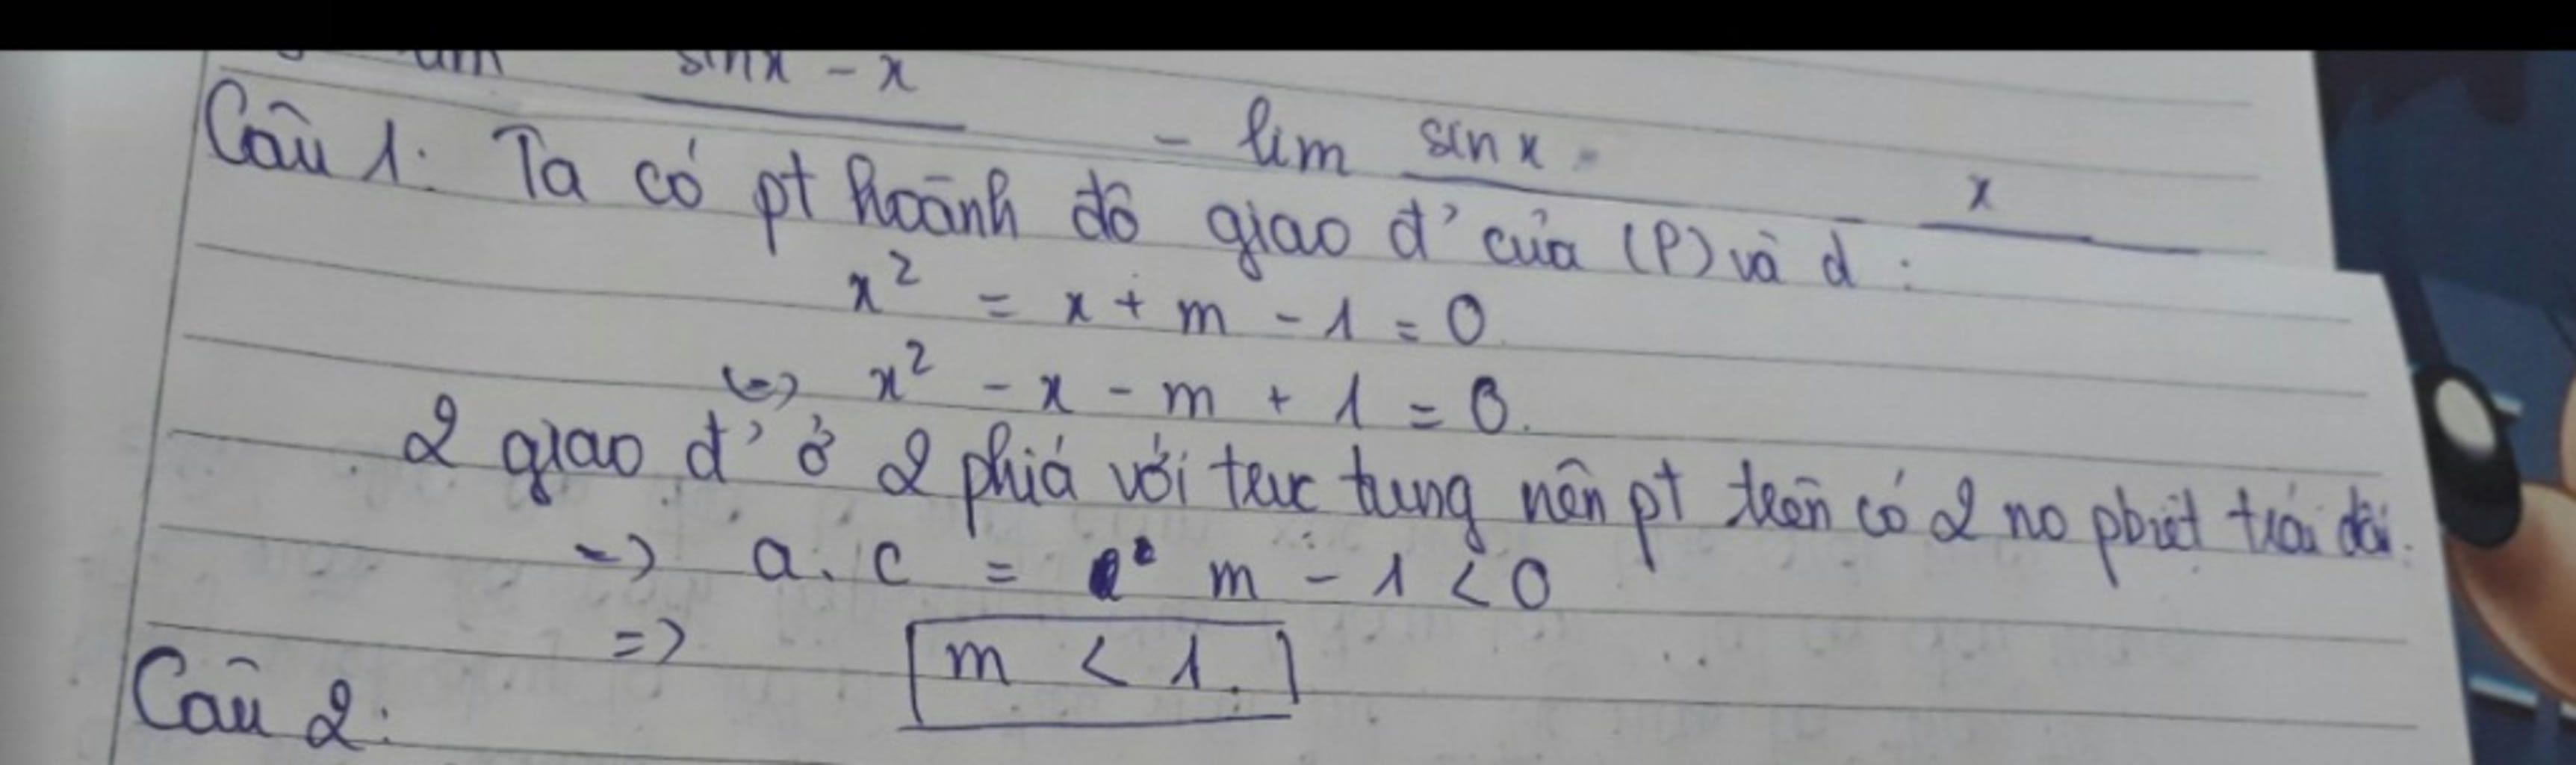 sinx - x
- lim sin x
x
Câu 1: Ta có pt hoành độ giao đ' của (P) và d :
x² = x + m - 1 = 0
<=> x² - x - m + 1 = 0.
2 giao đ' ở 2 phiá với trục tung nên pt trên có 2 no pbiệt trái dấu.
-> a. c = m - 1 < 0
=> m < 1.
Câu 2: